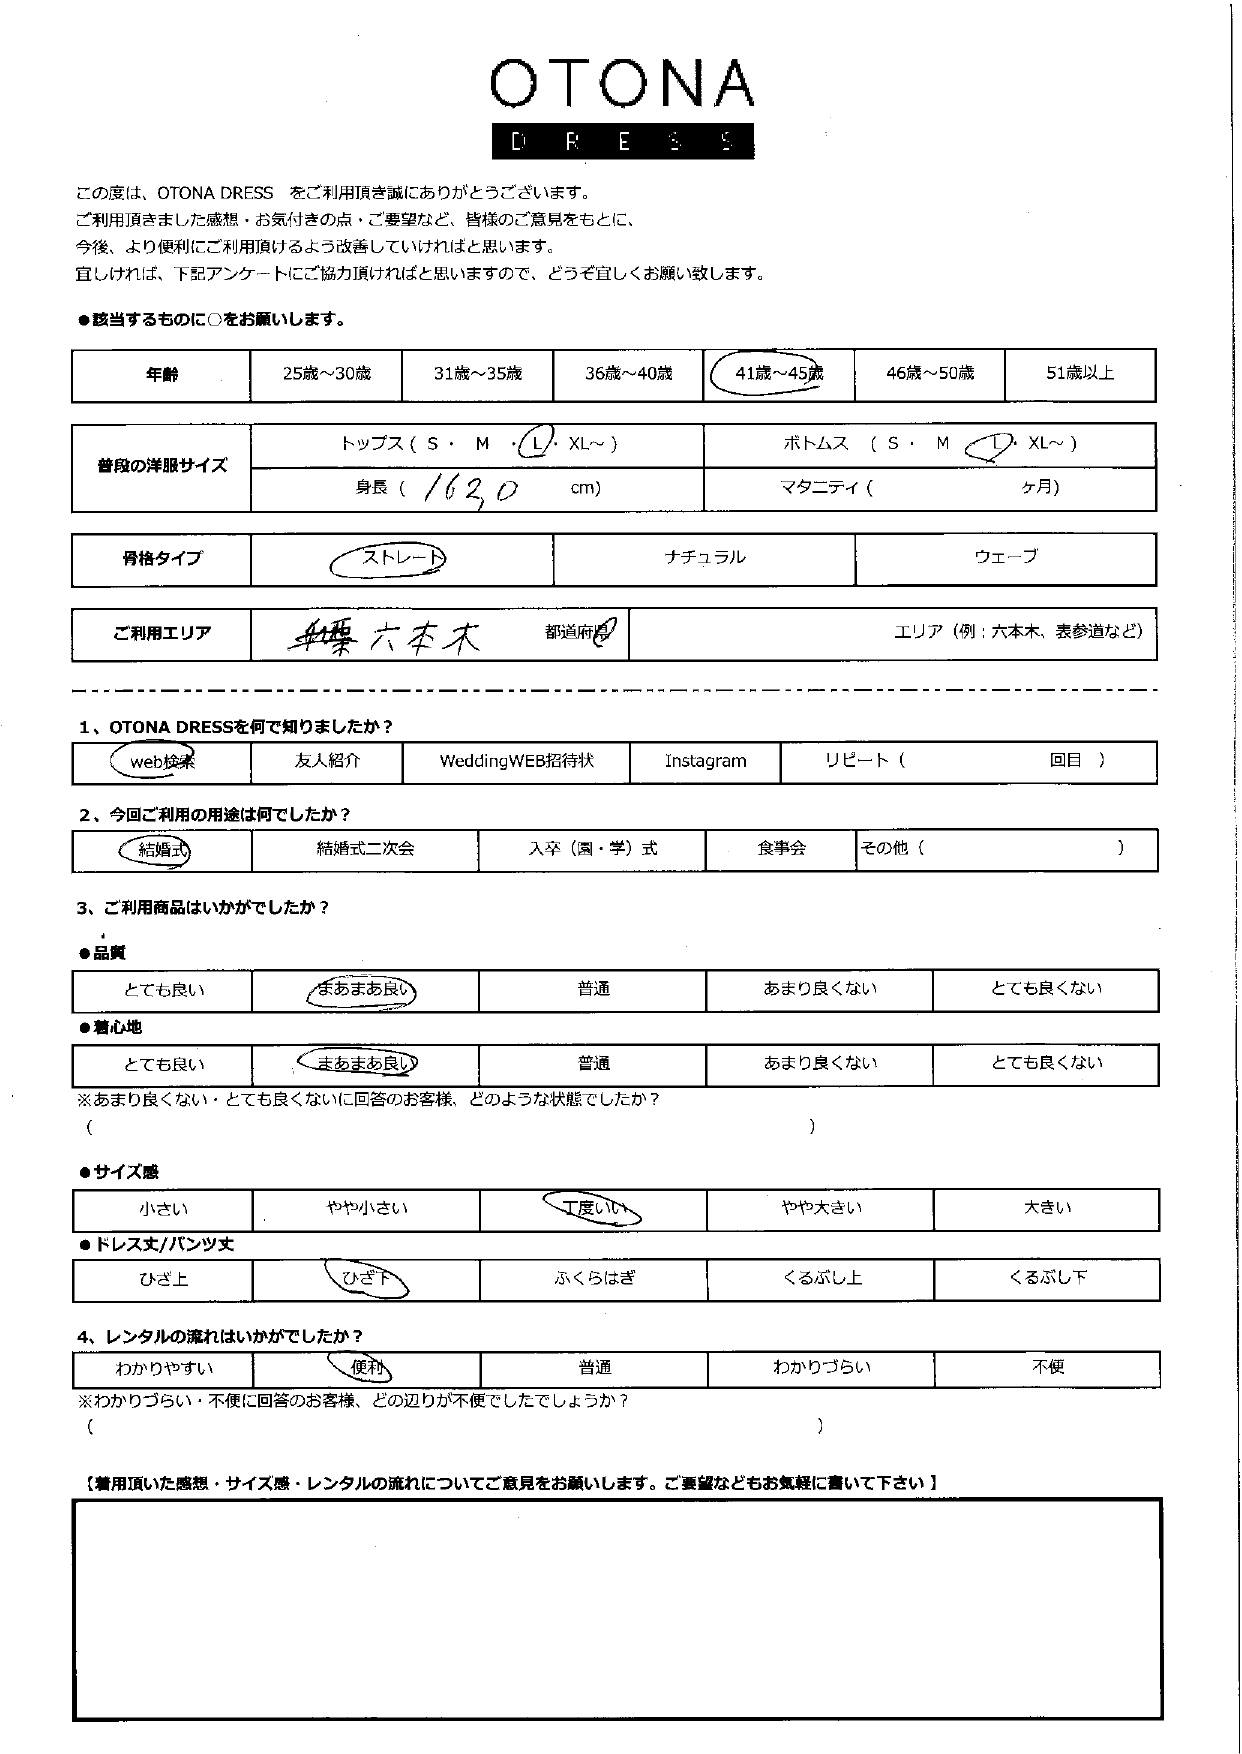 OTONA
DRESS
この度は、OTONA DRESS　をご利用頂き誠にありがとうございます。
ご利用頂きました感想・お気付きの点・ご要望など、皆様のご意見をもとに、
今後、より便利にご利用頂けるよう改善していければと思います。
宜しければ、下記アンケートにご協力頂ければと思いますので、どうぞ宜しくお願い致します。
●該当するものに○をお願いします。
年齢 25歳～30歳 31歳～35歳 36歳～40歳 41歳～45歳 46歳～50歳 51歳以上
普段の洋服サイズ トップス ( S ・ M ・ L ・ XL～ ) ボトムス ( S ・ M ・ L ・ XL～ )
身長 ( 162,0 cm) マタニティ ( ヶ月)
骨格タイプ ストレート ナチュラル ウェーブ
ご利用エリア 千葉 六本木 都道府県 エリア（例：六本木、表参道など）
1、OTONA DRESSを何で知りましたか？
web検索 友人紹介 WeddingWEB招待状 Instagram リピート（ 回目 ）
2、今回ご利用の用途は何でしたか？
結婚式 結婚式二次会 入卒（園・学）式 食事会 その他（ ）
3、ご利用商品はいかがでしたか？
●品質
とても良い まあまあ良い 普通 あまり良くない とても良くない
●着心地
とても良い まあまあ良い 普通 あまり良くない とても良くない
※あまり良くない・とても良くないに回答のお客様、どのような状態でしたか？
( )
●サイズ感
小さい やや小さい 丁度いい やや大きい 大きい
●ドレス丈/パンツ丈
ひざ上 ひざ下 ふくらはぎ くるぶし上 くるぶし下
4、レンタルの流れはいかがでしたか？
わかりやすい 便利 普通 わかりづらい 不便
※わかりづらい・不便に回答のお客様、どの辺りが不便でしたでしょうか？
( )
【着用頂いた感想・サイズ感・レンタルの流れについてご意見をお願いします。ご要望などもお気軽に書いて下さい】